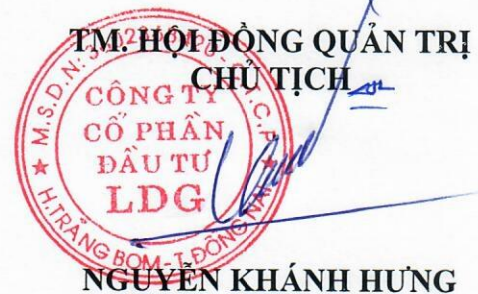 TM. HỘI ĐỒNG QUẢN TRỊ
CHỦ TỊCH
CÔNG TY
CỔ PHẦN
ĐẦU TƯ
LDG
H.TRẢNG BOM - T.ĐỒNG NAI
NGUYỄN KHÁNH HƯNG